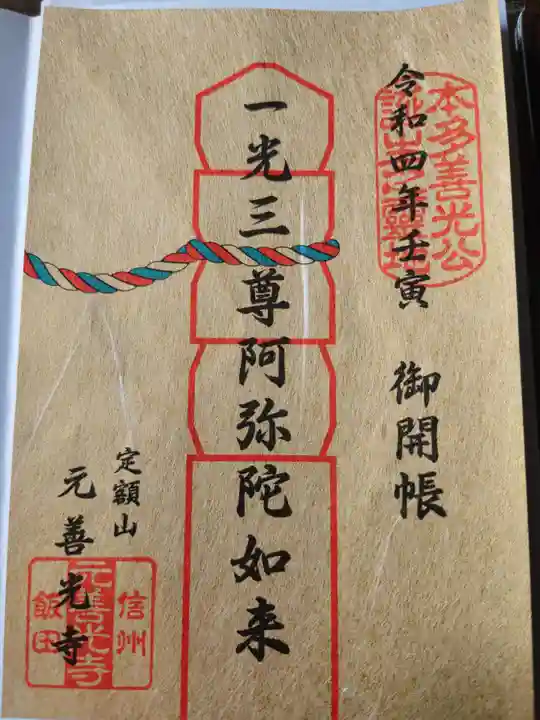 本多善光公
誕生之霊地
令和四年壬寅 御開帳
一光三尊阿弥陀如来
定額山
元善光寺
信州
元善光寺
飯田